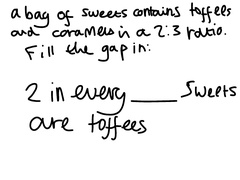 a bag of sweets contains toffees
and caramels in a 2:3 ratio.
Fill the gap in:
2 in every ____ sweets
are toffees